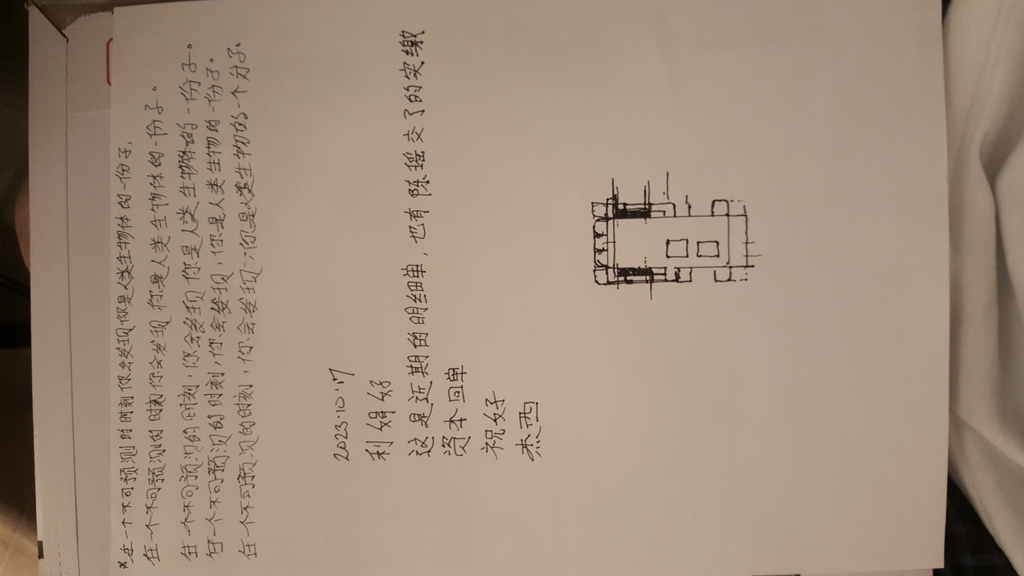 *在一个不可预测的时刻你会发现你是人类生物体的一份子,
在一个不可预测的时刻你会发现,你是人类生物体的一份子。
在一个不可预测的时刻,你会发现你是人类生物体的一份子。
在一个不可预测的时刻,你会发现,你是人类生物的一份子。
在一个不可预测的时刻,你会发现,你是人类生物的一个分子。
2023.10.17
利娟好
这是近期的明细单,也有陈摇交了的实缴
资本回单
祝好
杰西